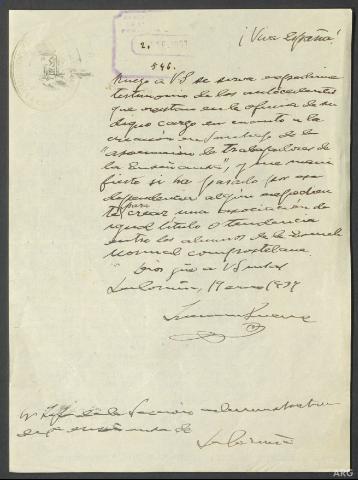 ¡Viva España!
2.
546.
Ruego a VS se sirva expedirme
testimonio de los antecedentes
que existan en la oficina de su
digno cargo en cuanto a la
creación en Santiago de la
"asociación de trabajadores de
la Enseñanza", y me mani
fieste si ha pasado por esa
dependencia algún expedien
te para crear una asociación de
igual título o tendencia
entre los alumnos de la Escuela
Normal compostelana.
Dios gûe a VS
La Coruña, 19 enero 1937
Sr Jefe de la Sección administrativa
de 1ª enseñanza de
La Coruña
ARG